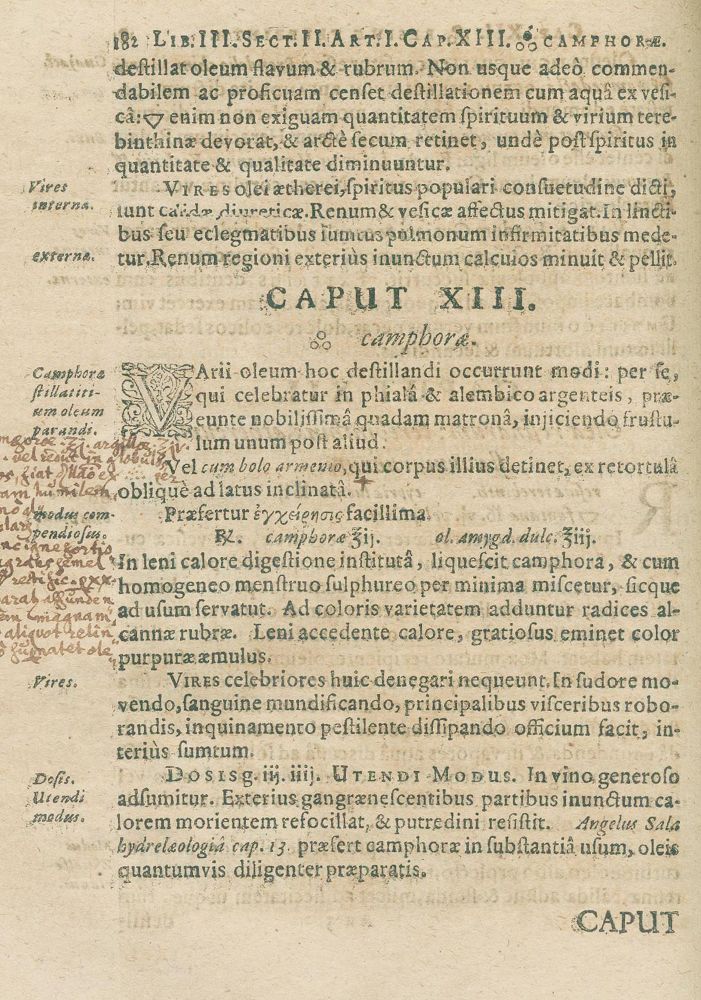 182 LIB.III.SECT.II.ART.I.CAP.XIII. CAMPHORÆ.
destillat oleum flavum & rubrum. Non usque adeò commen-
dabilem ac proficuam censet destillationem cum aquâ ex vesi-
câ: 🜄 enim non exiguam quantitatem spirituum & virium tere-
binthinæ devorat, & arctè secum retinet, undè post spiritus in
quantitate & qualitate diminuuntur.
Vires
internæ.
VIRES olei ætherei, spiritus populari consuetudine dicti,
sunt calidæ diureticæ. Renum & vesicæ affectus mitigat. In lincti-
bus seu eclegmatibus sumtus pulmonum infirmitatibus mede-
externæ.
tur. Renum regioni exteriùs inunctum calculos minuit & pellit.
CAPUT XIII.
camphoræ.
Camphoræ
stillatiti-
um oleum
parandi.
VArii oleum hoc destillandi occurrunt modi: per se,
qui celebratur in phialâ & alembico argenteis, præ-
eunte nobilissimâ quadam matronâ, injiciendo frustu-
lum unum post aliud.
Vel cum bolo armenio, qui corpus illius detinet, ex retortulâ
obliquè ad latus inclinatâ.
modus com-
pendiosus.
Præfertur ἐγχείρησις facillima.
℞. camphoræ ℥ij. ol. amygd. dulc. ℥iij.
In leni calore digestione institutâ, liquescit camphora, & cum
homogeneo menstruo sulphureo per minima miscetur, sicque
ad usum servatut. Ad coloris varietatem adduntur radices al-
cannæ rubræ. Leni accedente calore, gratiosus eminet color
purpuræ æmulus.
Vires.
VIRES celebriores huic denegari nequeunt. In sudore mo-
vendo, sanguine mundificando, principalibus visceribus robo-
randis, inquinamento pestilente dissipando officium facit, in-
teriùs sumtum.
Dosis.
Utendi
modus.
DOSIS g. iij. iiij. UTENDI MODUS. In vino generoso
adsumitur. Exterius gangrænescentibus partibus inunctum ca-
lorem morientem refocillat, & putredini resistit. Angelus Sala
hydrelæologiâ cap. 13. præfert camphoræ in substantiâ usum, oleis
quantumvis diligenter præparatis.
CAPUT